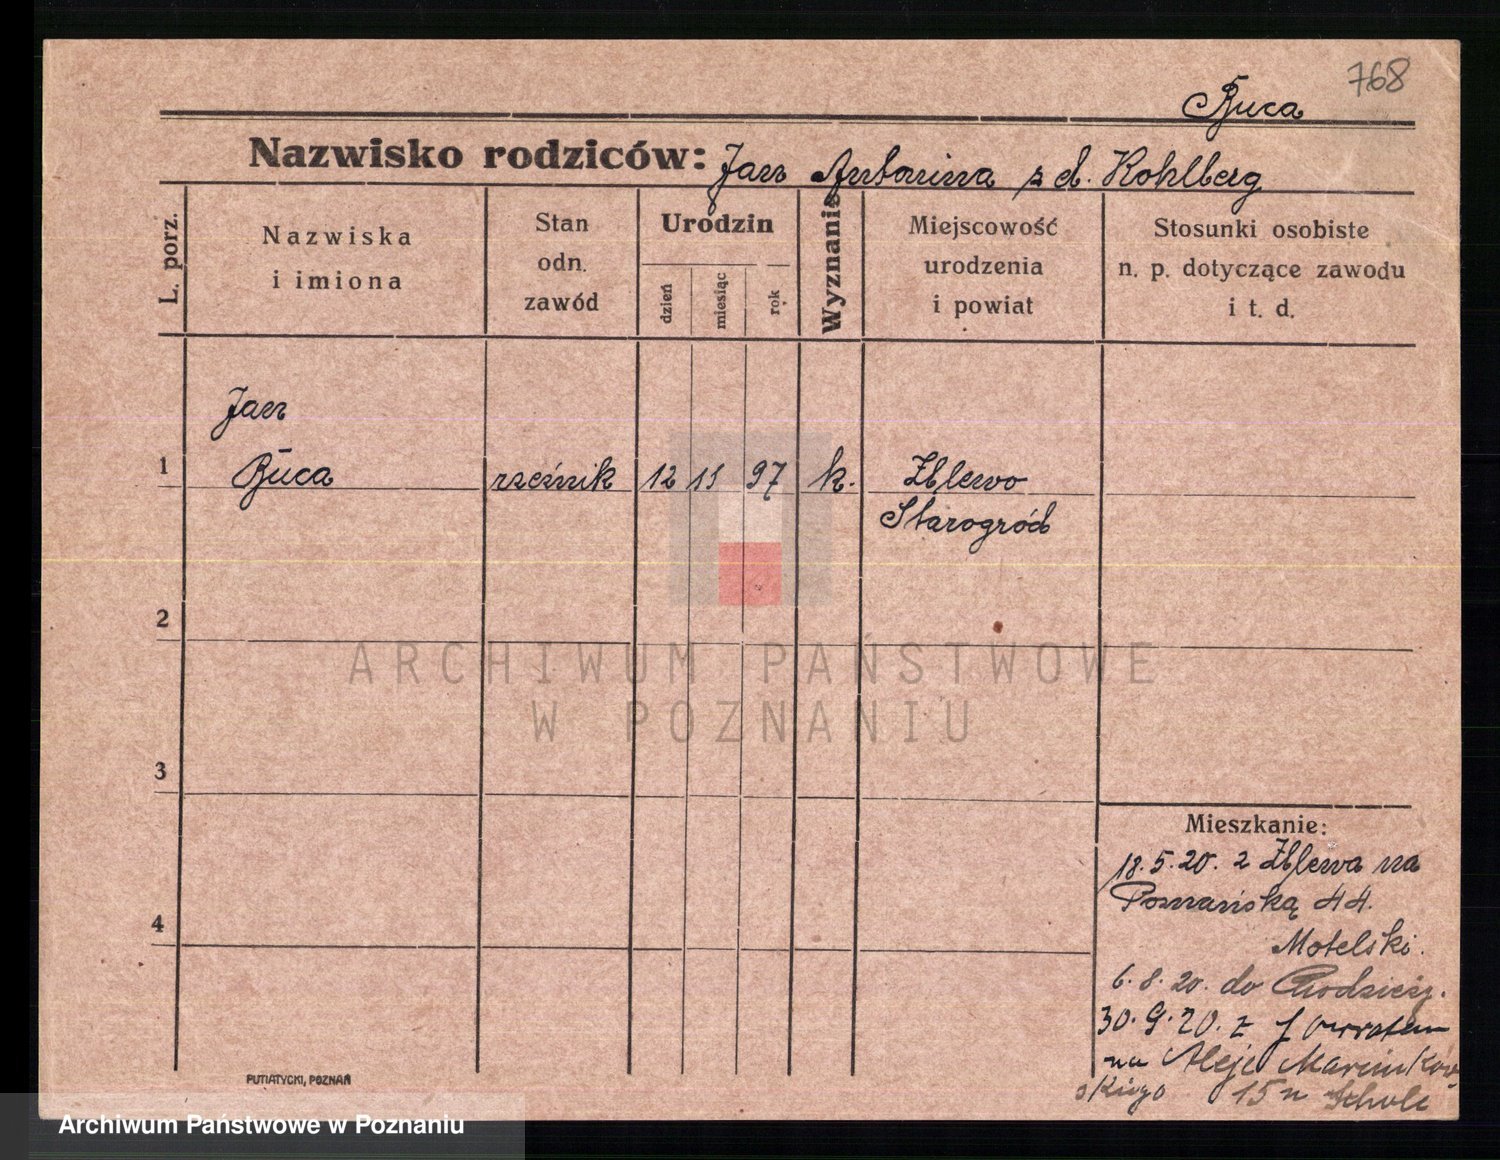 768
Buca
Nazwisko rodziców: Jan Antonina z d. Kohlberg
L. porz.
Nazwiska
i imiona
Stan
odn.
zawód
Urodzin
dzień
miesiąc
rok
Wyznanie
Miejscowość
urodzenia
i powiat
Stosunki osobiste
n. p. dotyczące zawodu
i t. d.
Jan
1 Buca rzeźnik 12 11 97 k. Zblewo
Starogród
2
ARCHIWUM PAŃSTWOWE
W POZNANIU
3
Mieszkanie:
18.5.20. z Zblewa na
Poznańską 44.
4
Motelski.
6.8.20. do Chodzież.
30.9.20. z
na Aleje Marcinkow
skiego 15 u
PUTIATYCKI, POZNAŃ
Archiwum Państwowe w Poznaniu